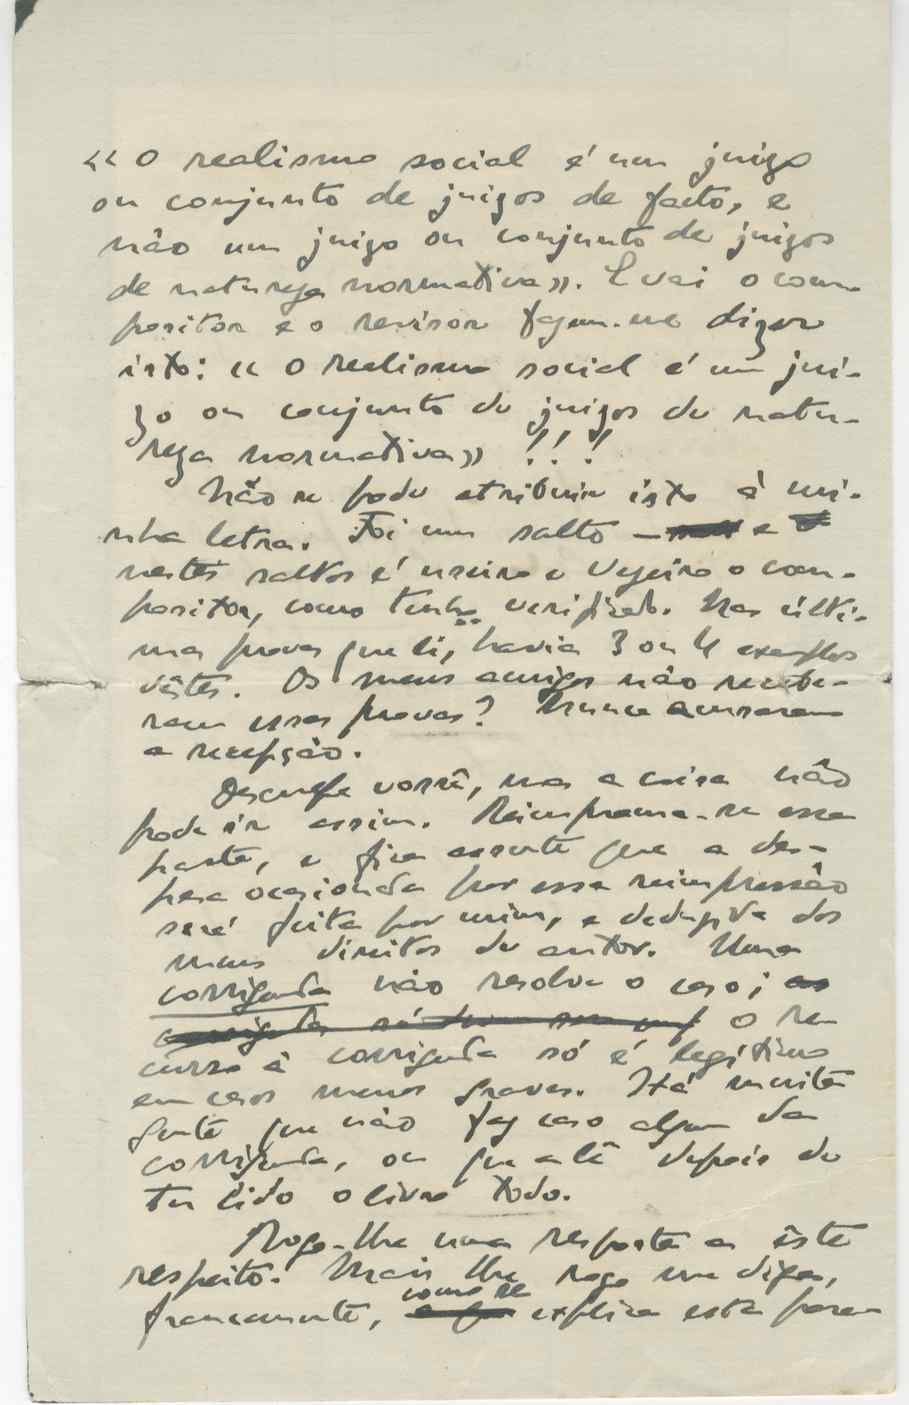 «O realismo social é um juizo
ou conjunto de juizos de facto, e
não um juizo ou conjunto de juizos
de natureza normativa». E vai o com-
positor e o revisor fazem-me dizer
isto: «O realismo social é um jui-
zo ou conjunto de juizos de natu-
reza normativa»!!!
Não se pode atribuir isto à mi-
nha letra. Foi um salto — e
nestes saltos é useiro e vezeiro o com-
positor, como tenho verificado. Nas últi-
mas provas que li, havia 3 ou 4 exemplos
dêstes. Os meus amigos não recebe-
ram essas provas? Nunca acusaram
a recepção.
Desculpe você, mas a coisa não
pode ir assim. Reimprima-se essa
parte, e fica assente que a des-
pesa ocasionada por essa reimpressão
será feita por mim, e deduzida dos
meus direitos de autor. Uma
corrigenda não resolve o caso;
O re-
curso à corrigenda só é legítimo
em casos menos graves. Há muita
gente que não faz caso algum da
corrigenda, ou que a lê depois de
ter lido o livro todo.
Rogo-lhe uma resposta a êste
respeito. Mais lhe rogo me diga,
francamente, como se explica esta para-